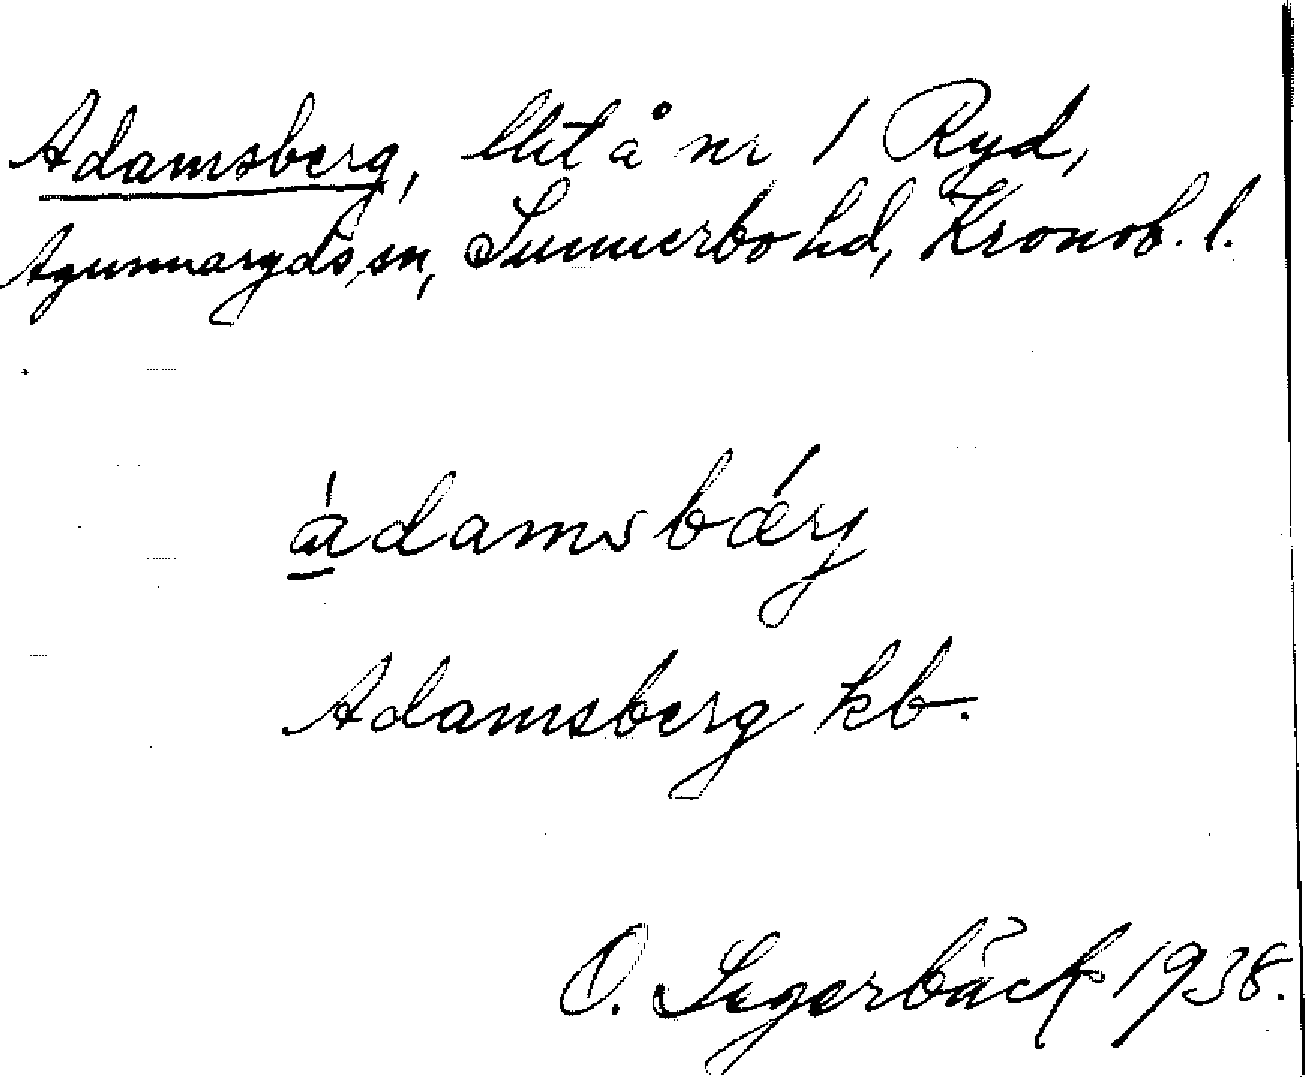 Adamsberg, lht å nr 1 Ryd,
Agunnaryds sn, Sunnerbo hd, Kronob. l.
ádamsbǽrj
Adamsberg kb.
O. Segerbäck 1938.